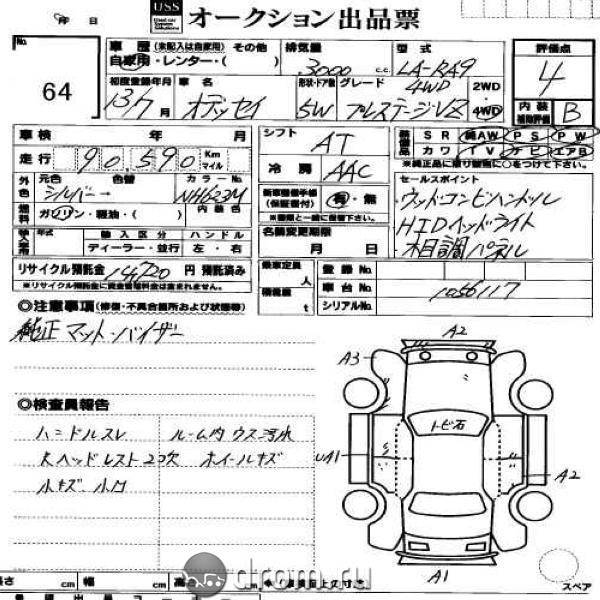 USS オークション 出品票
年 月
No. 64
車歴 (未記入は自家用) その他
自家用・レンター・( )
排気量 3000 c.c.
型式 LA-RA9
評価点 4
内装 B
補助評価
初度登録年月 13/7月
車名 オデッセイ
形状・ドア数 5W
グレード 4WD プレステージVZ
2WD
4WD
車検 年 月
走行 90,590 Km マイル
シフト AT
冷房 AAC
装備品 SR 純AW PS PW
カワ TV ナビ エアB
※純正品に限り種別に○をつけて下さい。
外色 元色 シルバー→ 色替 カラーNo. NH623M
燃料 ガソリン・軽油・( ) 内装色
輸入車用 年式 輸入区分 ハンドル
ディーラー・並行 左・右
新車整備手帳 (保証書付) 有・無
※書類と一緒に保管下さい。
名義変更期限 月 日
セールスポイント
ウッドコンビハンドル
HIDヘッドライト
木目調パネル
リサイクル預託金 14720 円 預託済み
※リサイクル預託金に資金管理料金は含まれません。
乗車定員 人
積載量 t
登録No.
車台No. 1056117
シリアルNo.
◎注意事項 (修復・不具合箇所および状態等)
純正マット・バイザー
◎検査員報告
ハンドルスレ ルーム内ウス汚れ
Rヘッドレスト2コ欠 ホイールキズ
小キズ 小凹
A2
A3
トビ石
UA1
A2
A1
スペア
長さ cm 幅 cm 高さ cm
drom.ru